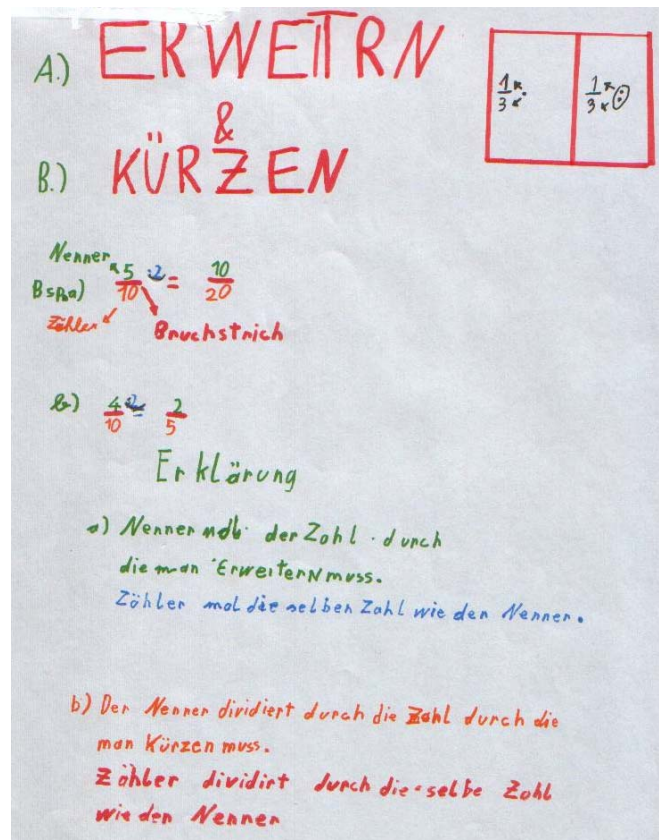 A.) ERWEITRN
&
B.) KÜRZEN
1/3 · 1/3 :
Nenner
Bsp. a) 5/10 ·2 = 10/20
Zähler
Bruchstrich
b) 4/10 = 2/5
Erklärung
a) Nenner der Zahl · durch
die man Erweitern muss.
Zähler mal die selben Zahl wie den Nenner.
b) Der Nenner dividiert durch die Zahl durch die
man Kürzen muss.
Zähler dividirt durch die selbe Zahl
wie den Nenner